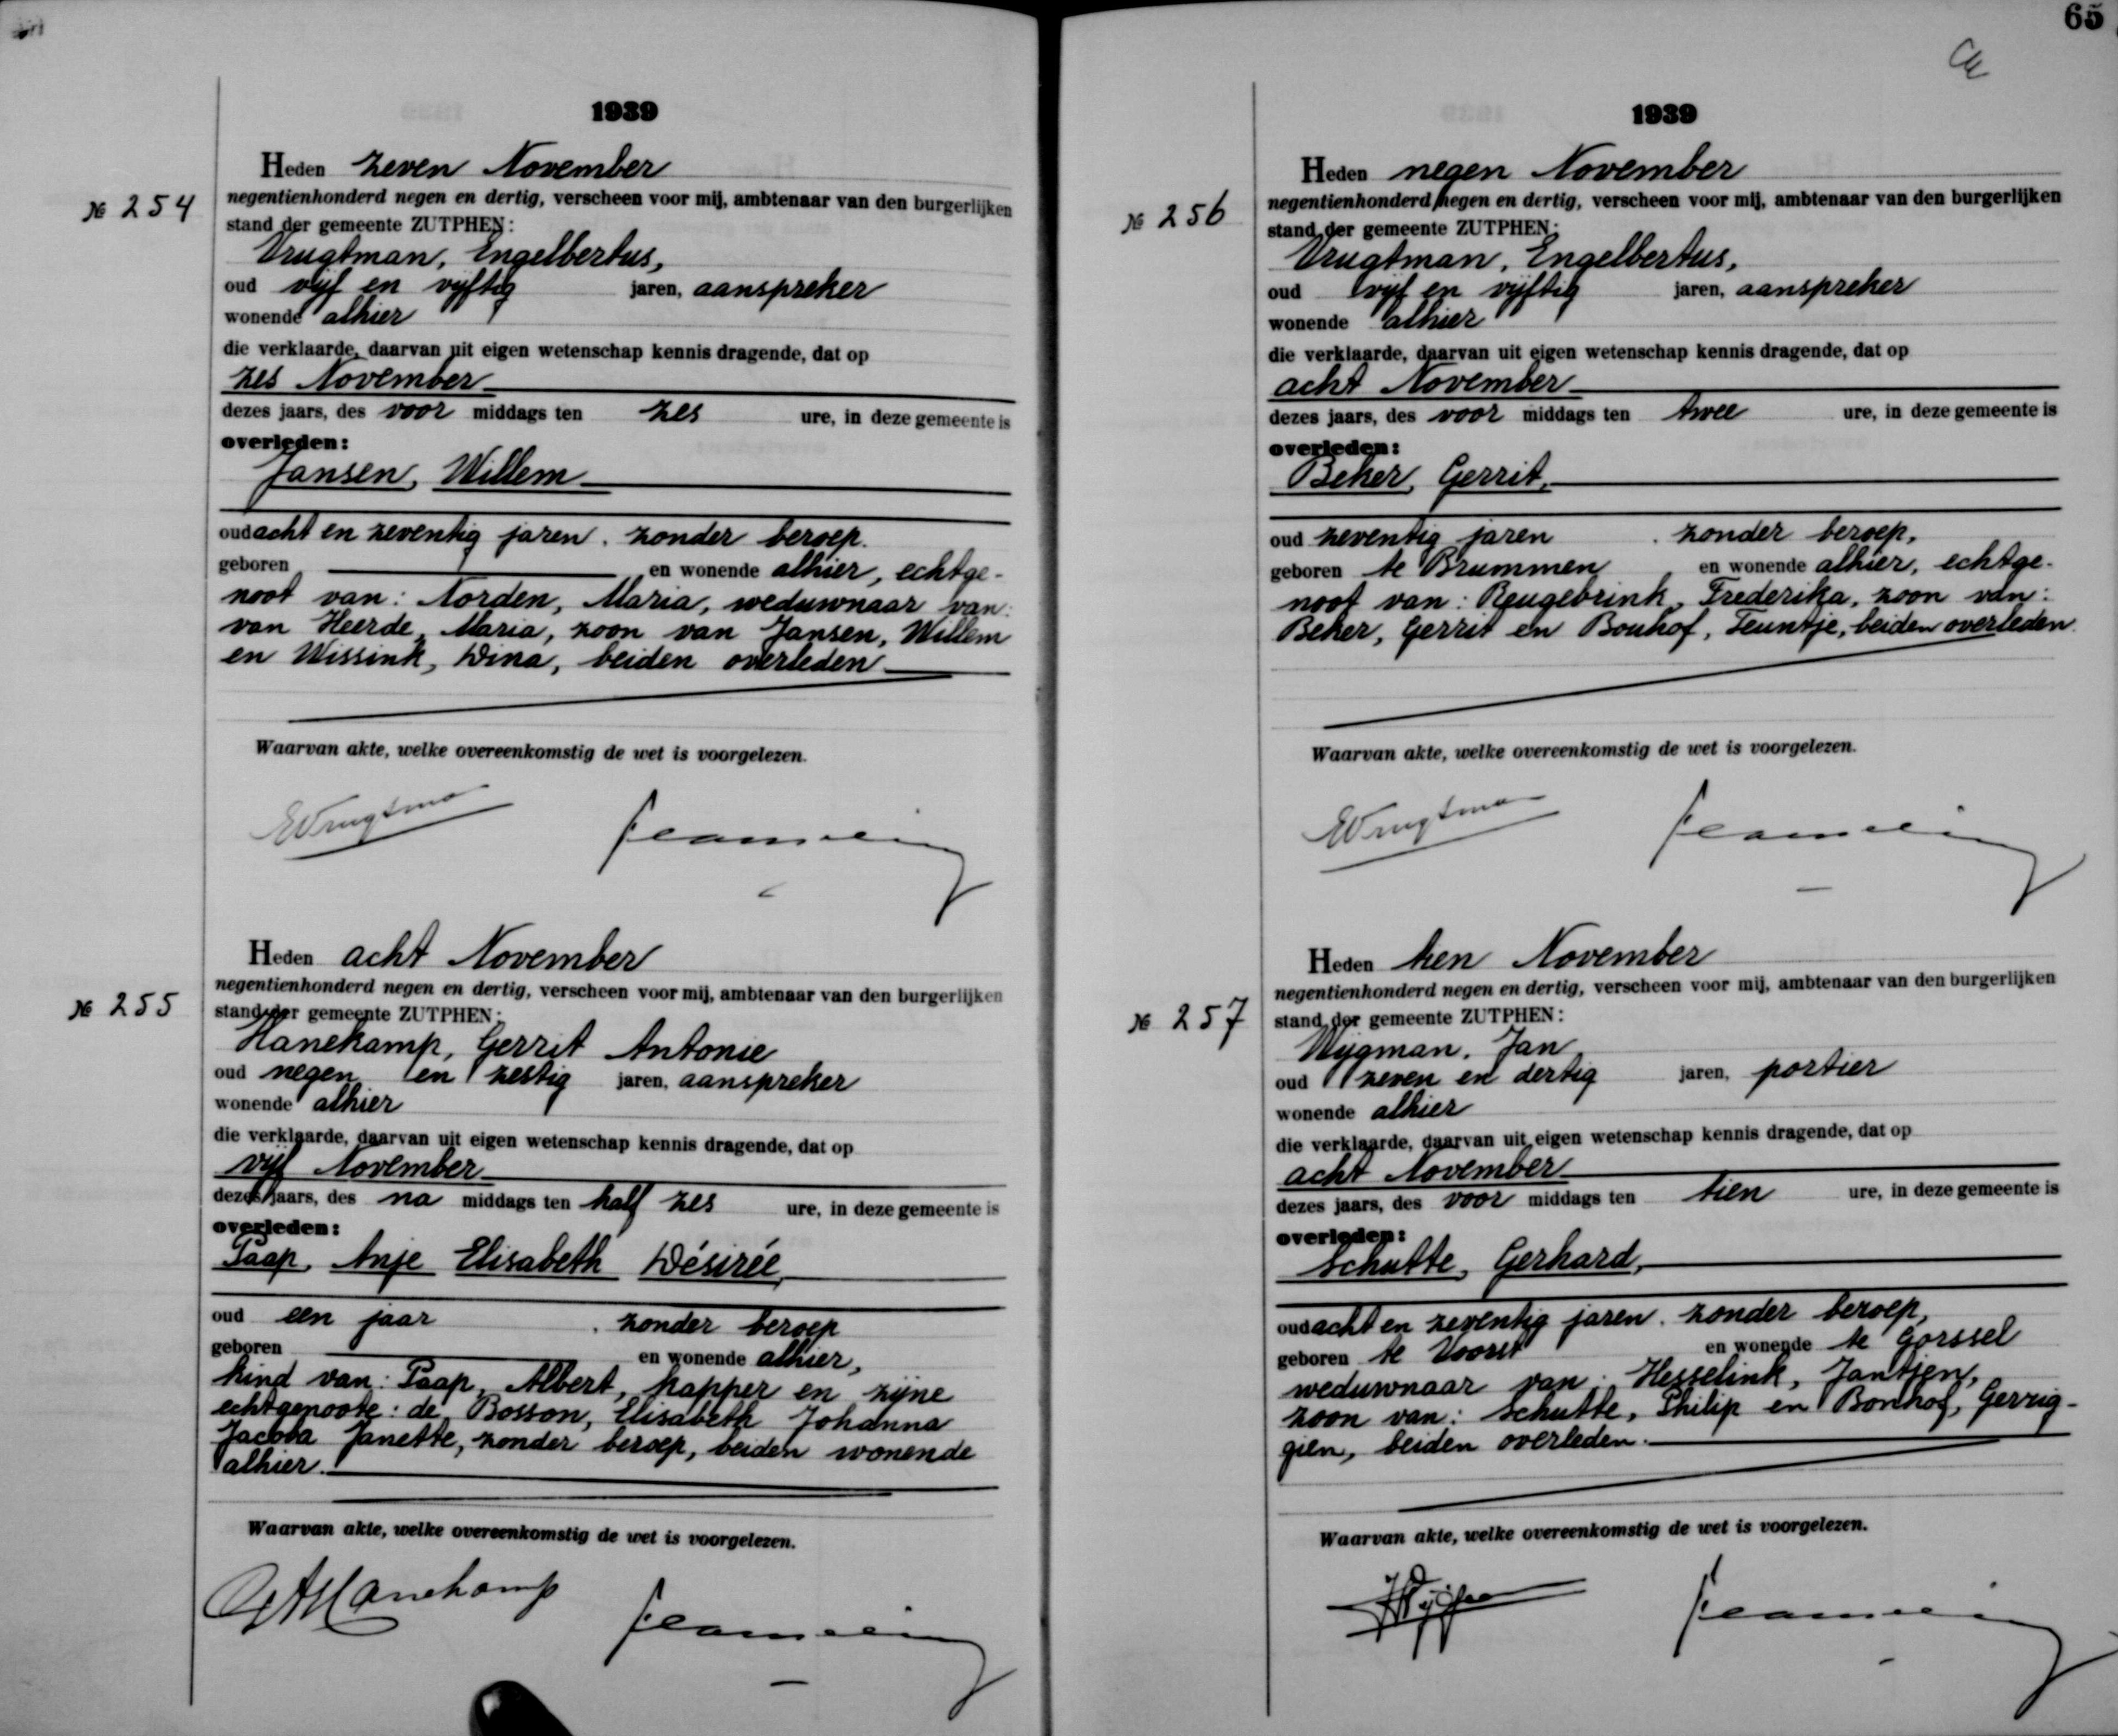 1939
Heden zeven November
№ 254
negentienhonderd negen en dertig, verscheen voor mij, ambtenaar van den burgerlijken
stand der gemeente ZUTPHEN:
Vrugtman, Engelbertus,
oud vijf en vijftig jaren, aanspreker
wonende alhier
die verklaarde, daarvan uit eigen wetenschap kennis dragende, dat op
zes November
dezes jaars, des voor middags ten zes ure, in deze gemeente is
overleden:
Jansen, Willem
oud acht en zeventig jaren. zonder beroep.
geboren en wonende alhier, echtge-
noot van: Norden, Maria, weduwnaar van:
van Heerde, Maria, zoon van Jansen, Willem
en Wissink, Dina, beiden overleden
Waarvan akte, welke overeenkomstig de wet is voorgelezen.
EVrugtman
Heden acht November
№ 255
negentienhonderd negen en dertig, verscheen voor mij, ambtenaar van den burgerlijken
stand der gemeente ZUTPHEN:
Hanekamp, Gerrit Antonie
oud negen en zestig jaren, aanspreker
wonende alhier
die verklaarde, daarvan uit eigen wetenschap kennis dragende, dat op
vijf November
dezes jaars, des na middags ten half zes ure, in deze gemeente is
overleden:
Paap, Anje Elisabeth Désirée,
oud een jaar. zonder beroep
geboren en wonende alhier,
kind van: Paap, Albert, kapper en zijne
echtgenoote: de Bosson, Elisabeth Johanna
Jacoba Janette, zonder beroep, beiden wonende
alhier.
Waarvan akte, welke overeenkomstig de wet is voorgelezen.
GAHanekamp
65
1939
Heden negen November
№ 256
negentienhonderd negen en dertig, verscheen voor mij, ambtenaar van den burgerlijken
stand der gemeente ZUTPHEN:
Vrugtman, Engelbertus,
oud vijf en vijftig jaren, aanspreker
wonende alhier
die verklaarde, daarvan uit eigen wetenschap kennis dragende, dat op
acht November
dezes jaars, des voor middags ten twee ure, in deze gemeente is
overleden:
Beker, Gerrit,
oud zeventig jaren. zonder beroep,
geboren te Brummen en wonende alhier, echtge-
noot van: Reugebrink, Frederika, zoon van:
Beker, Gerrit en Bouhof, Teuntje, beiden overleden.
Waarvan akte, welke overeenkomstig de wet is voorgelezen.
EVrugtman
Heden tien November
№ 257
negentienhonderd negen en dertig, verscheen voor mij, ambtenaar van den burgerlijken
stand der gemeente ZUTPHEN:
Wijgman, Jan
oud zeven en dertig jaren, portier
wonende alhier
die verklaarde, daarvan uit eigen wetenschap kennis dragende, dat op
acht November
dezes jaars, des voor middags ten tien ure, in deze gemeente is
overleden:
Schutte, Gerhard,
oud acht en zeventig jaren. zonder beroep,
geboren te Voorst en wonende te Gorssel
weduwnaar van: Hesselink, Jantjen,
zoon van: Schutte, Philip en Bonhof, Gerrig-
gien, beiden overleden.
Waarvan akte, welke overeenkomstig de wet is voorgelezen.